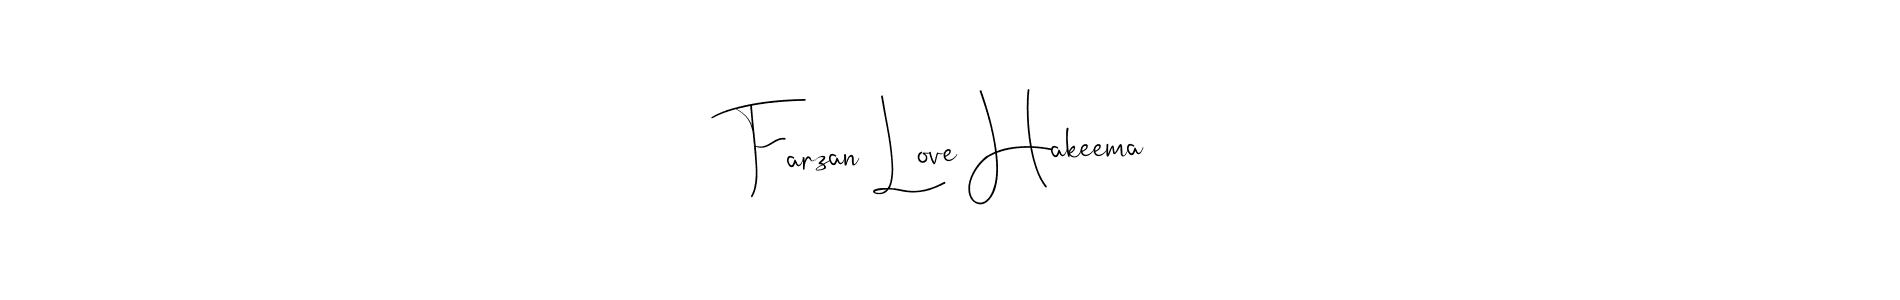 Farzan Love Hakeema